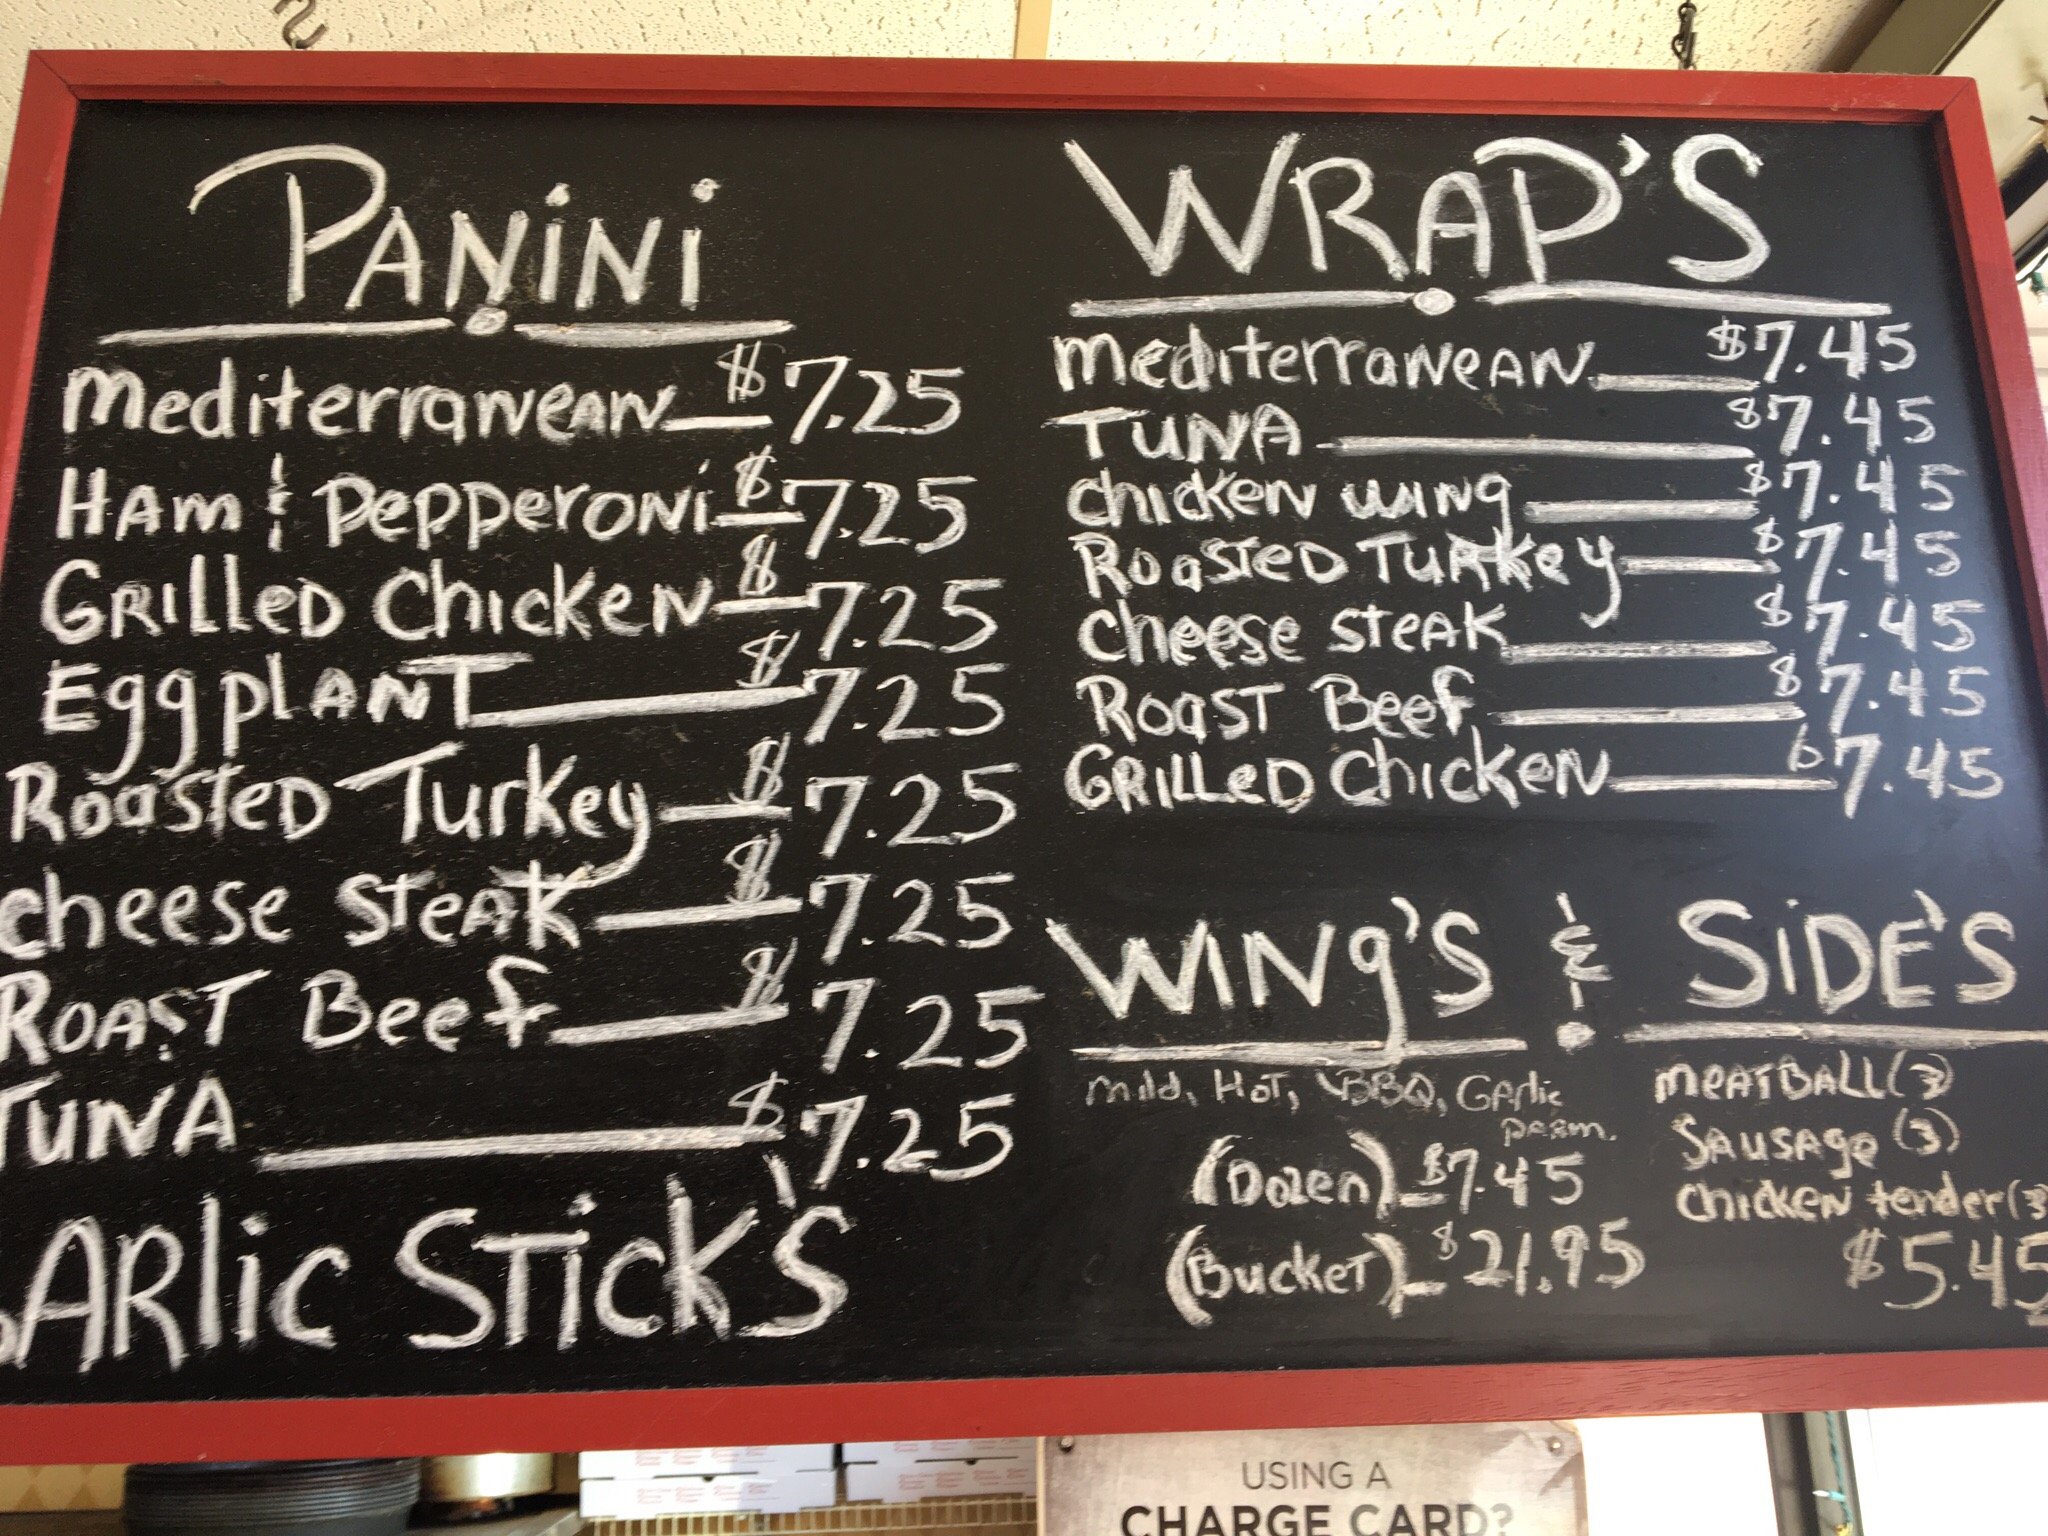 PANiNi
mediterranean $7.25
HAm & PepperoNi $7.25
GRilleD ChickeN $7.25
EggplANT $7.25
RoasteD Turkey $7.25
cheese steAK $7.25
ROAST Beef $7.25
TUNA $7.25
GARlic STick'S
WRAP'S
mediterraneAN $7.45
TUNA $7.45
chicken wing $7.45
RoasteD Turkey $7.45
cheese steAK $7.45
RoasT Beef $7.45
GRilleD ChickeN $7.45
WINg'S & SiDE'S
mild, HoT, BBQ, GArlic
pArm.
(Dozen) $7.45
(BuckeT) $21.95
meATBALL (3)
SAUSAge (3)
chicken tender (3)
$5.45
USING A
CHARGE CARD?